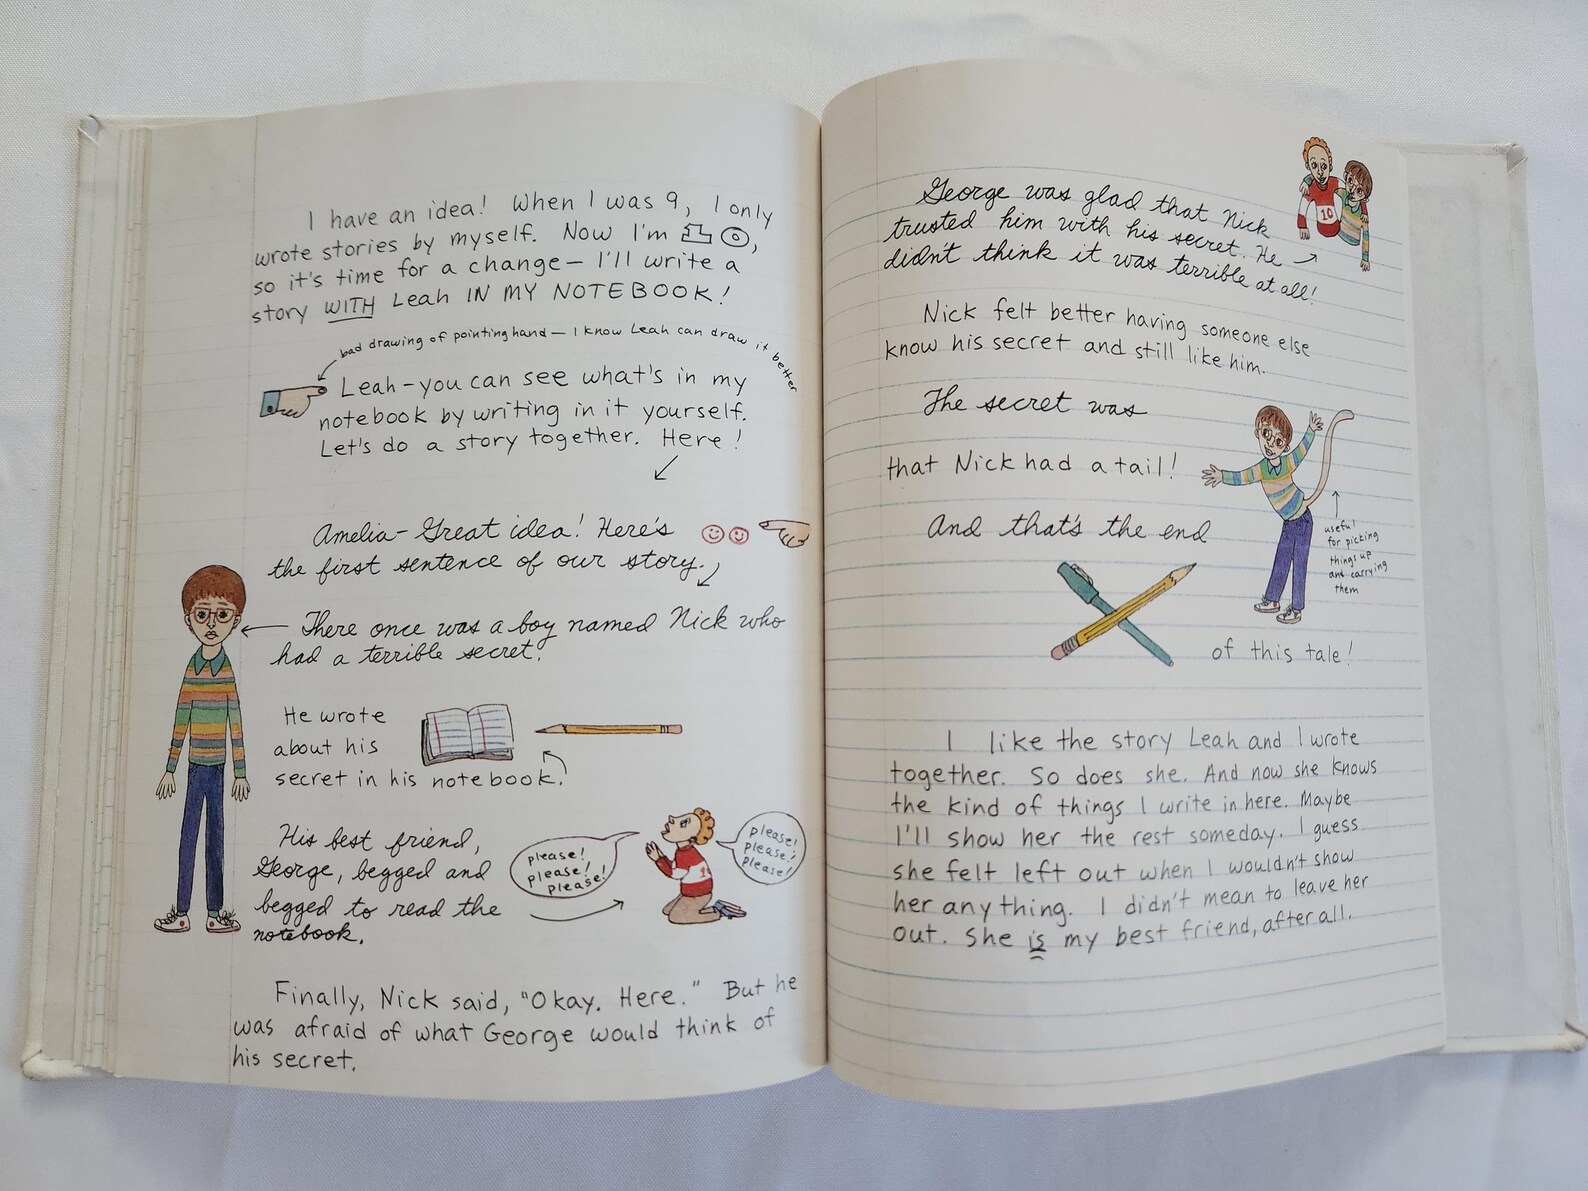 I have an idea! When I was 9, I only
wrote stories by myself. Now I'm 10,
so it's time for a change — I'll write a
story WITH Leah IN MY NOTEBOOK!
bad drawing of pointing hand — I know Leah can draw it better
Leah — you can see what's in my
notebook by writing in it yourself.
Let's do a story together. Here!
Amelia — Great idea! Here's
the first sentence of our story.
There once was a boy named Nick who
had a terrible secret.
He wrote
about his
secret in his notebook.
His best friend,
George, begged and
begged to read the
notebook.
please!
please!
please!
please!
please!
please!
Finally, Nick said, "Okay. Here." But he
was afraid of what George would think of
his secret.
George was glad that Nick
trusted him with his secret. He
didn't think it was terrible at all!
10
Nick felt better having someone else
know his secret and still like him.
The secret was
that Nick had a tail!
useful
for picking
things up
and carrying
them
And that's the end
of this tale!
I like the story Leah and I wrote
together. So does she. And now she knows
the kind of things I write in here. Maybe
I'll show her the rest someday. I guess
she felt left out when I wouldn't show
her anything. I didn't mean to leave her
out. She is my best friend, after all.